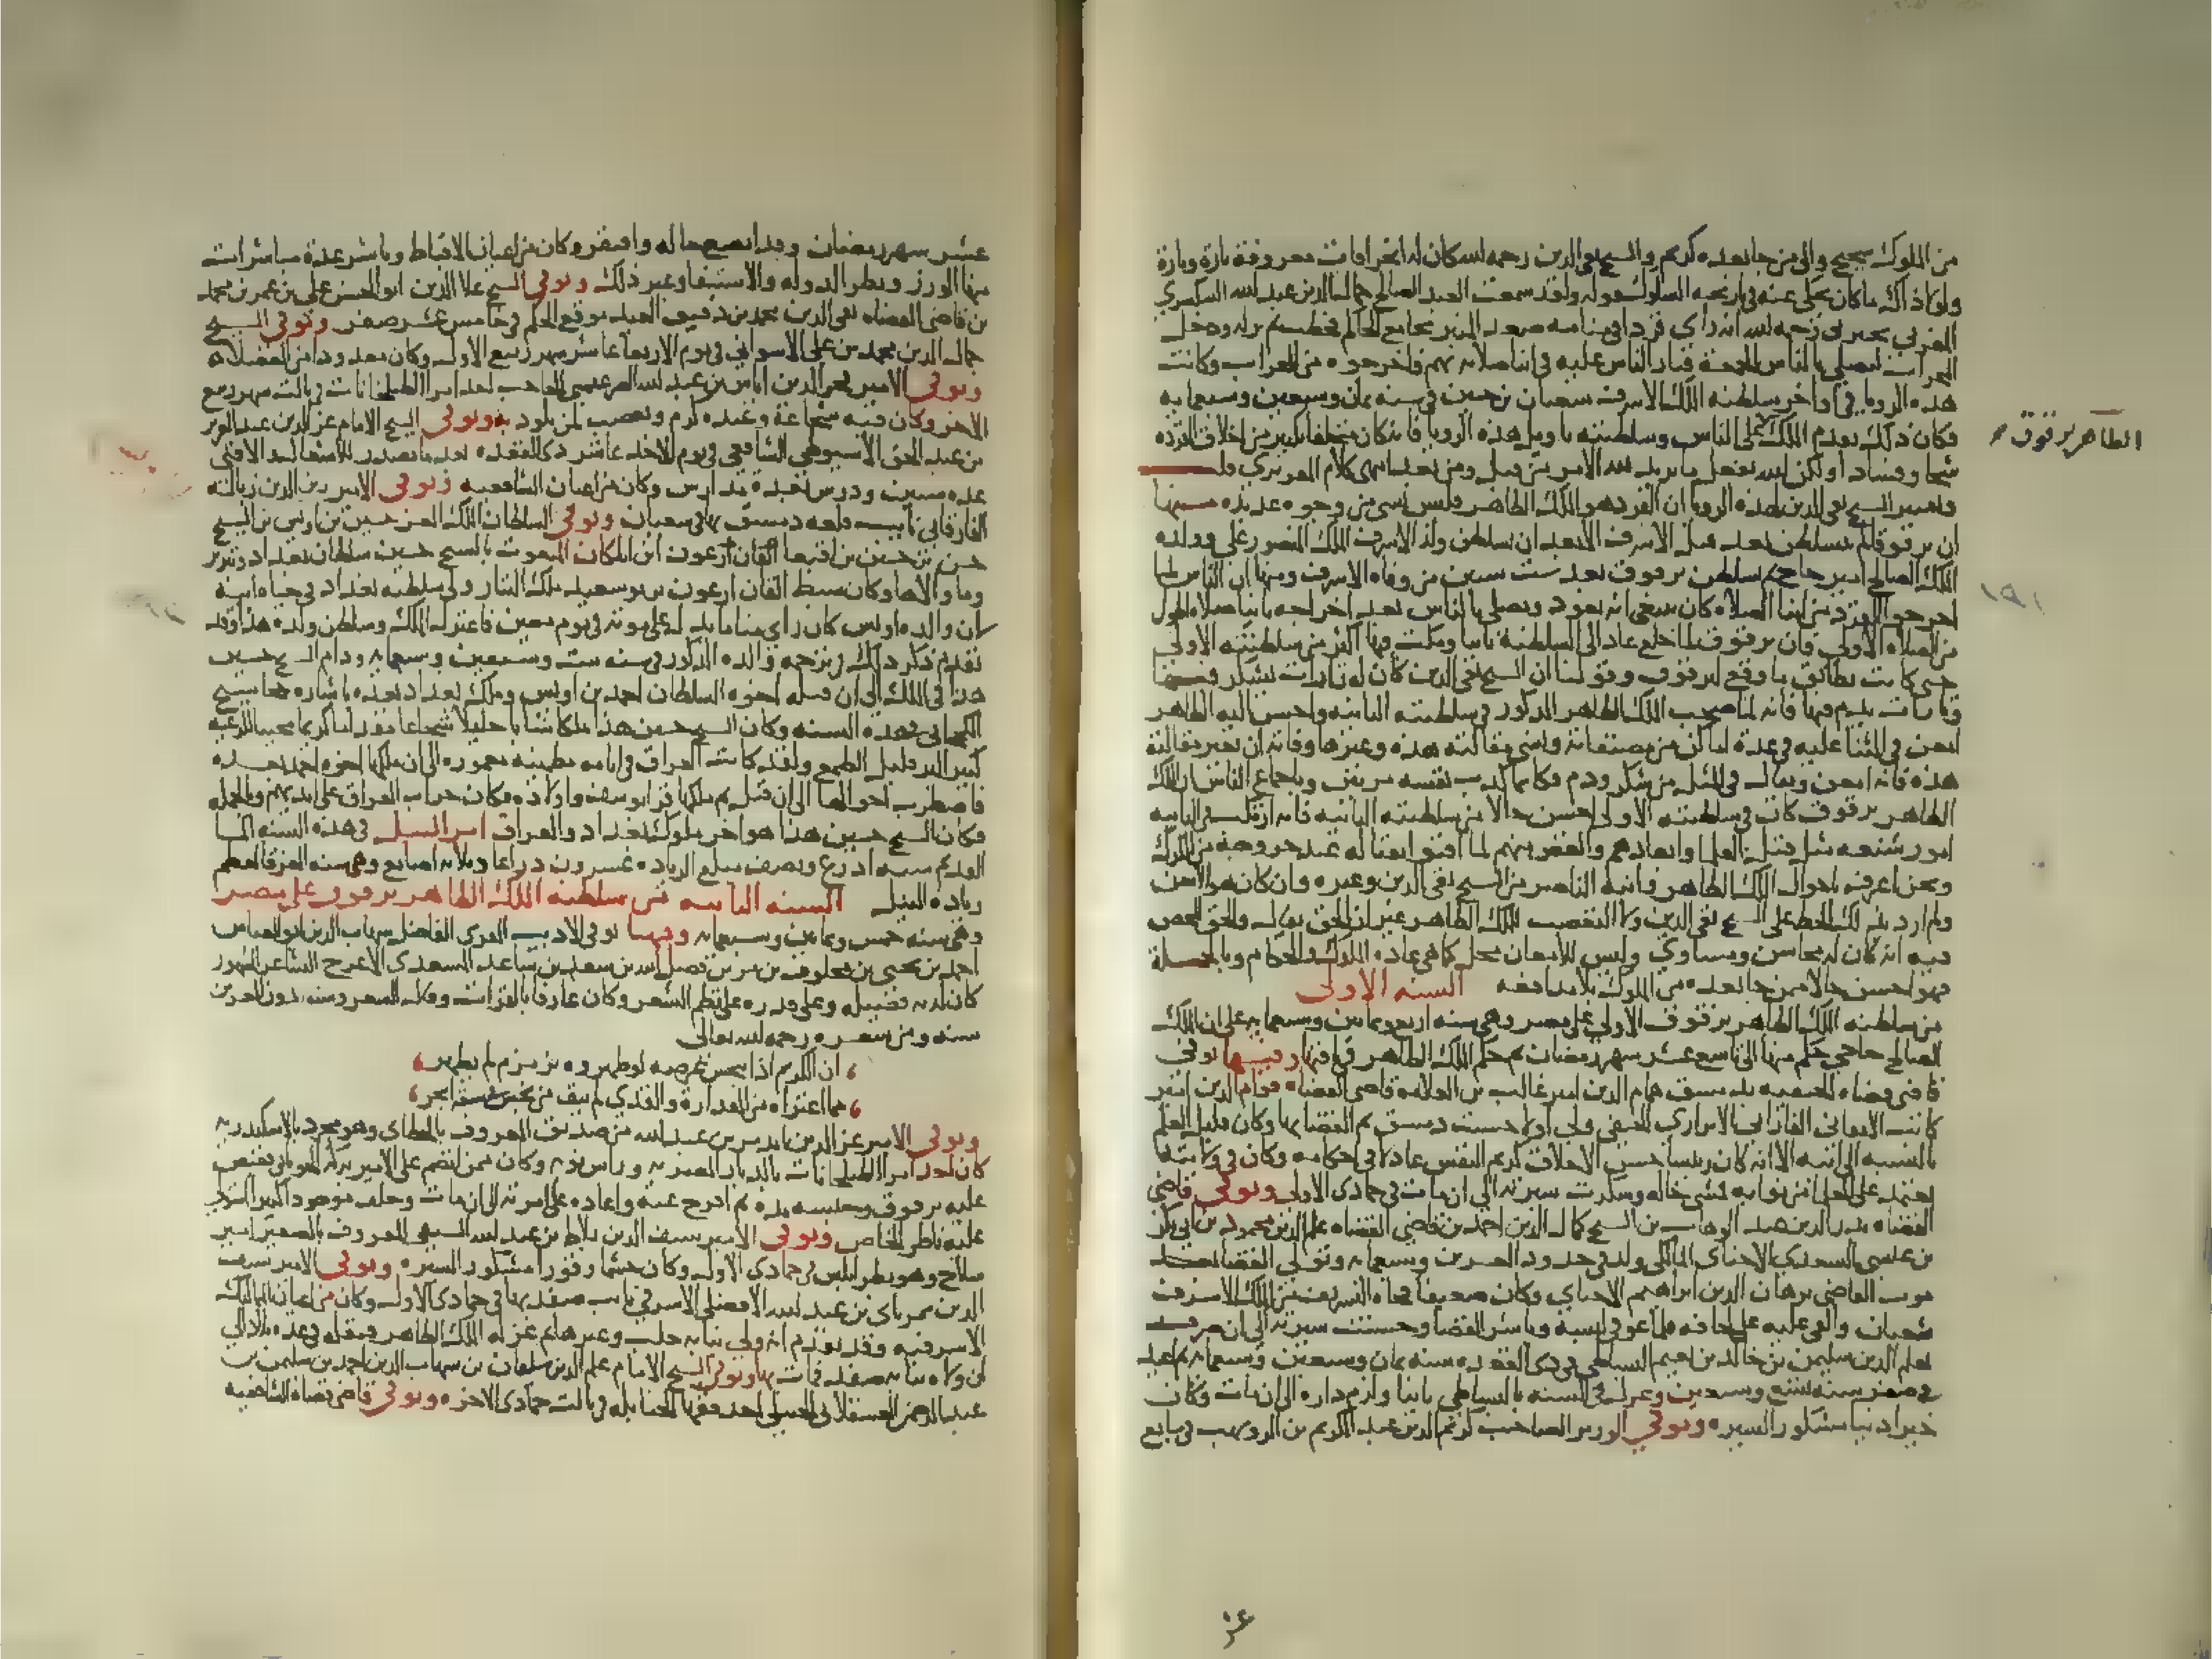 من الملوك سمح والى من جا بعده كريم والشيخ تقى الدين رحمه الله كان له انحرافات معروفة تارة وتارة
ولولا ذلك ما كان يحكى عنه فى تاريخه السلوك قوله ولقد سمعت العبد الصالح جمال الدين عبد الله السكسرى
المغربى يخبر رحمه الله انه راى قردا فى منامه صعد المنبر بجامع الحاكم فخطب ثم نزل ودخل
المحراب ليصلى بالناس الجمعة فثار الناس عليه فى اثنا صلاته بهم فاخرجوه من المحراب وكانت
هذه الرويا فى اواخر سلطنه الملك الاشرف شعبان بن حسين فى سنه ثمان وسبعين وسبعمايه
فكان ذلك تقدم الملك على الناس وسلطنته تاويل هذه الرويا فانه كان متخلقا بكثير من اخلاق القرده
شحا وفسادا ولكن الله يفعل ما يريد لله الامر من قبل ومن بعد انتهى كلام المقريزى قلت
وتفسير الشيخ تقى الدين لهذه الرويا ان القرد هو الملك الظاهر فليس بشى من وجوه عديده منها
ان برقوقا لم يتسلطن بعد قتل الاشرف الا بعد ان تسلطن ولد الاشرف الملك المنصور على وولده
الملك الصالح امير حاج ثم تسلطن برقوق بعد ست سنين من وفاة الاشرف ومنها ان الناس لما
اخرجوا القرد من اثنا الصلاة كان ينبغى انه يعود ويصلى بالناس بعد اخراجه ثانيا صلاة اطول
من الصلاة الاولى فان برقوق لما خلع عاد الى السلطنة ثانيا ومكث فيها اكثر من سلطنته الاولى
حتى كانت تطابق ما وقع لبرقوق وقولنا ان الشيخ تقى الدين كان له تارات يشكر فيها
وتارات يذم فيها فانه لما صحب الملك الظاهر المذكور فى سلطنته الثانيه واحسن اليه الظاهر
امعن فى الثنا عليه فى عدة اماكن من مصنفاته ونسى مقالته هذه وغيرها وفاته ان يغير مقالته
هذه فانه امعن ويقال فى المثل من شكر وذم فكانما كذب نفسه مرتين وباجماع الناس ان الملك
الظاهر برقوق كان فى سلطنته الاولى احسن حالا من سلطنته الثانيه فانه ارتكب فى الثانيه
امور شنعه مثل قتل العلما وابعادهم والغض منهم لما افتوا بقتاله عند خروجه من الكرك
ونحن اعرف باحوال الملك الظاهر وابنه الناصر من الشيخ تقى الدين وغيره وان كان هو الاسن
ولم ارد بذلك الحط على الشيخ تقى الدين ولا التعصب للملك الظاهر غير ان الحق يقال والحق المحض
فيه انه كان له محاسن ومساوى وليس للامعان محل كما هى عادة الملوك والحكام وبالجملة
فهو احسن حالا ممن جا بعده من الملوك بلا مدافعه السنه الاولى
من سلطنه الملك الظاهر برقوق الاولى على مصر وهى سنه اربع وثمانين وسبعمايه على ان الملك
الصالح حاجى حكم منها الى تاسع عشر شهر رمضان ثم حكم الملك الظاهر فى باقيها وفيها توفى
قاضى قضاة الحنفيه بدمشق همام الدين امير غالب بن العلامه قاضى القضاة قوام الدين امير
كاتب الاتقانى الفارابى الاترارى الحنفى ولى اولا حسبت دمشق ثم القضا بها وكان قليل العلم
بالنسبه الى ابيه الا انه كان رييسا حسن الاخلاق كريم النفس عادلا فى احكامه وكان فى ولايته
يعتمد على العلما من نوابه فمشى حاله وشكرت سيرته الى ان مات فى جمادى الاولى وتوفى قاضى
القضاة بدر الدين عبد الوهاب بن الشيخ كمال الدين احمد بن قاضى القضاة علم الدين محمد بن ابى بكر
بن عيسى السعدى الاخناى المالكى ولد فى حدود العشرين وسبعمايه وتولى القضا بعد
موت القاضى برهان الدين ابراهيم الاخناى وكان ضعيفا بجاه الشريفه من الملك الاشرف
شعبان والقى عليه على لحافه فلما عوفى لبسه وباشر القضا وحسنت سيرته الى ان صرف
بعلم الدين سليمن بن خالد بن نعيم البساطى فى ذى القعده سنه ثمان وسبعين وسبعمايه ثم اعيد
فى صفر سنه تسع وسبعين وعزل فى السنه بالبساطى ثانيا ولزم داره الى ان مات وكان
خيرا دينا مشكور السيره وتوفى الوزير الصاحب كريم الدين عبد الكريم بن الرويهب فى سابع
الظاهر برقوق
عشر شهر رمضان وقد اتضع حاله وافتقر وكان من اعيان الاقباط وباشر عدة مباشرات
منها الوزر ونظر الدوله والاستيفا وغير ذلك وتوفى الشيخ علا الدين ابو الحسن على بن عمر بن محمد
بن قاضى القضاه تقى الدين محمد بن دقيق العيد موقع الحكم فى خامس عشر صفر وتوفى الشيخ
جمال الدين محمد بن على الاسوانى فى يوم الاربعا عاشر شهر ربيع الاول وكان يعد من الفضلا
وتوفى الامير فخر الدين اياس بن عبد الله الصرغتمشى الحاجب احد امرا الطبلخانات فى ثالث شهر ربيع
الاخر وكان فيه شجاعة وعنده كرم وتعصب لمن يلوذ به وتوفى الشيخ الامام عز الدين عبد العزيز
بن عبد الحق الاسيوطى الشافعى فى يوم الاحد عاشر ذى القعده بعد ما تصدر للاشغال والافتى
عدة سنين ودرس بعدة مدارس وكان من اعيان الشافعيه وتوفى الامير زين الدين زبالة
الفارقانى نايب قلعه دمشق بها فى شعبان وتوفى السلطان الملك المعز حسين بن اويس بن الشيخ
حسن بن حسين بن اقبغا القان ارغون ابن ايلكان المنعوت بالشيخ حسين سلطان بغداد وتبريز
وما والاها وكان سبط القان ارغون بن بوسعيد ملك التتار ولى سلطنه بغداد فى حياه ابيه
لان والده اويس كان راى مناما يدل على موته فى يوم معين فاعتزل الملك وسلطن ولده هذا وقد
تقدم ذكر ذلك فى ترجمه والده المذكور فى سنه ست وسبعين وسبعمايه ودام الشيخ حسين
هذا فى الملك الى ان قتله اخوه السلطان احمد بن اويس وملك بغداد بعده باشاره خجا شيخ
الكججانى فى هذه السنه وكان الشيخ حسين هذا ملكا شابا جليلا شجاعا مقداما كريما محببا للرعيه
كثير البر قليل الطمع ولقد كانت العراق فى ايامه مطمنه معموره الى ان ملكها اخوه احمد بعده
فاضطربت احوالها الى ان قتل ثم ملكها قرا يوسف واولاده فكان خراب العراق على ايديهم وبالجمله
فكان الشيخ حسين هذا هو اخر ملوك بغداد والعراق امر النيل فى هذه السنه الما
القديم سته اذرع ونصف مبلغ الزياده عشرون ذراعا وثلاثه اصابع وهى سنه الغرقا لعظم
زياده النيل السنه الثانيه من سلطنه الملك الظاهر برقوق على مصر
وهى سنه خمس وثمانين وسبعمايه وفيها توفى الاديب المقرى الفاضل شهاب الدين ابو العباس
احمد بن يحيى بن مخلوف بن مرى بن فضل الله بن سعد بن ساعد السعدى الاعرج الشاعر المشهور
كان لديه فضيله وعلى قدره على نظم الشعر وكان عارفا بالقراات وقال الشعر وسنه دون العشرين
سنه ومن شعره رحمه الله تعالى
ان الكريم اذا تنجس عرضه لو طهروه بزمزم لم يطهر
مما اعتراه من القذارة والقذى لم ينق من نجس بسبعة ابحر
وتوفى الامير عز الدين ايدمر بن عبد الله من صديق المعروف بالخطاى وهو مجرد بالاسكندريه
كان احد امرا الطبلخانات بالديار المصريه وراس نوبه وكان ممن انضم على الامير بركه الجوبانى فقبض
عليه برقوق وحبسه مده ثم افرج عنه واعاده على امرته الى ان مات وخلف موجودا كبيرا استولى
عليه ناظر الخاص وتوفى الامير سيف الدين بلاط بن عبد الله السيفى المعروف بالصغير امير
سلاح وهو بطرابلس فى جمادى الاولى وكان حشما وقورا مشكور السيره وتوفى الامير سيف
الدين تمرباى بن عبد الله الافضلى الاشرفى نايب صفد بها فى جمادى الاولى وكان من اعيان المماليك
الاشرفيه وقد تقدم انه ولى نيابه حلب وغيرها ثم عزله الملك الظاهر فنقله فى عده بلاد الى
ان ولاه نيابه صفد فمات بها وتوفى الشيخ الامام علم الدين سليمان بن شهاب الدين احمد بن سليمن بن
عبد الرحمن العسقلانى الحنبلى احد فقها الحنابله فى ثالث جمادى الاخره وتوفى قاضى قضاة الشافعيه